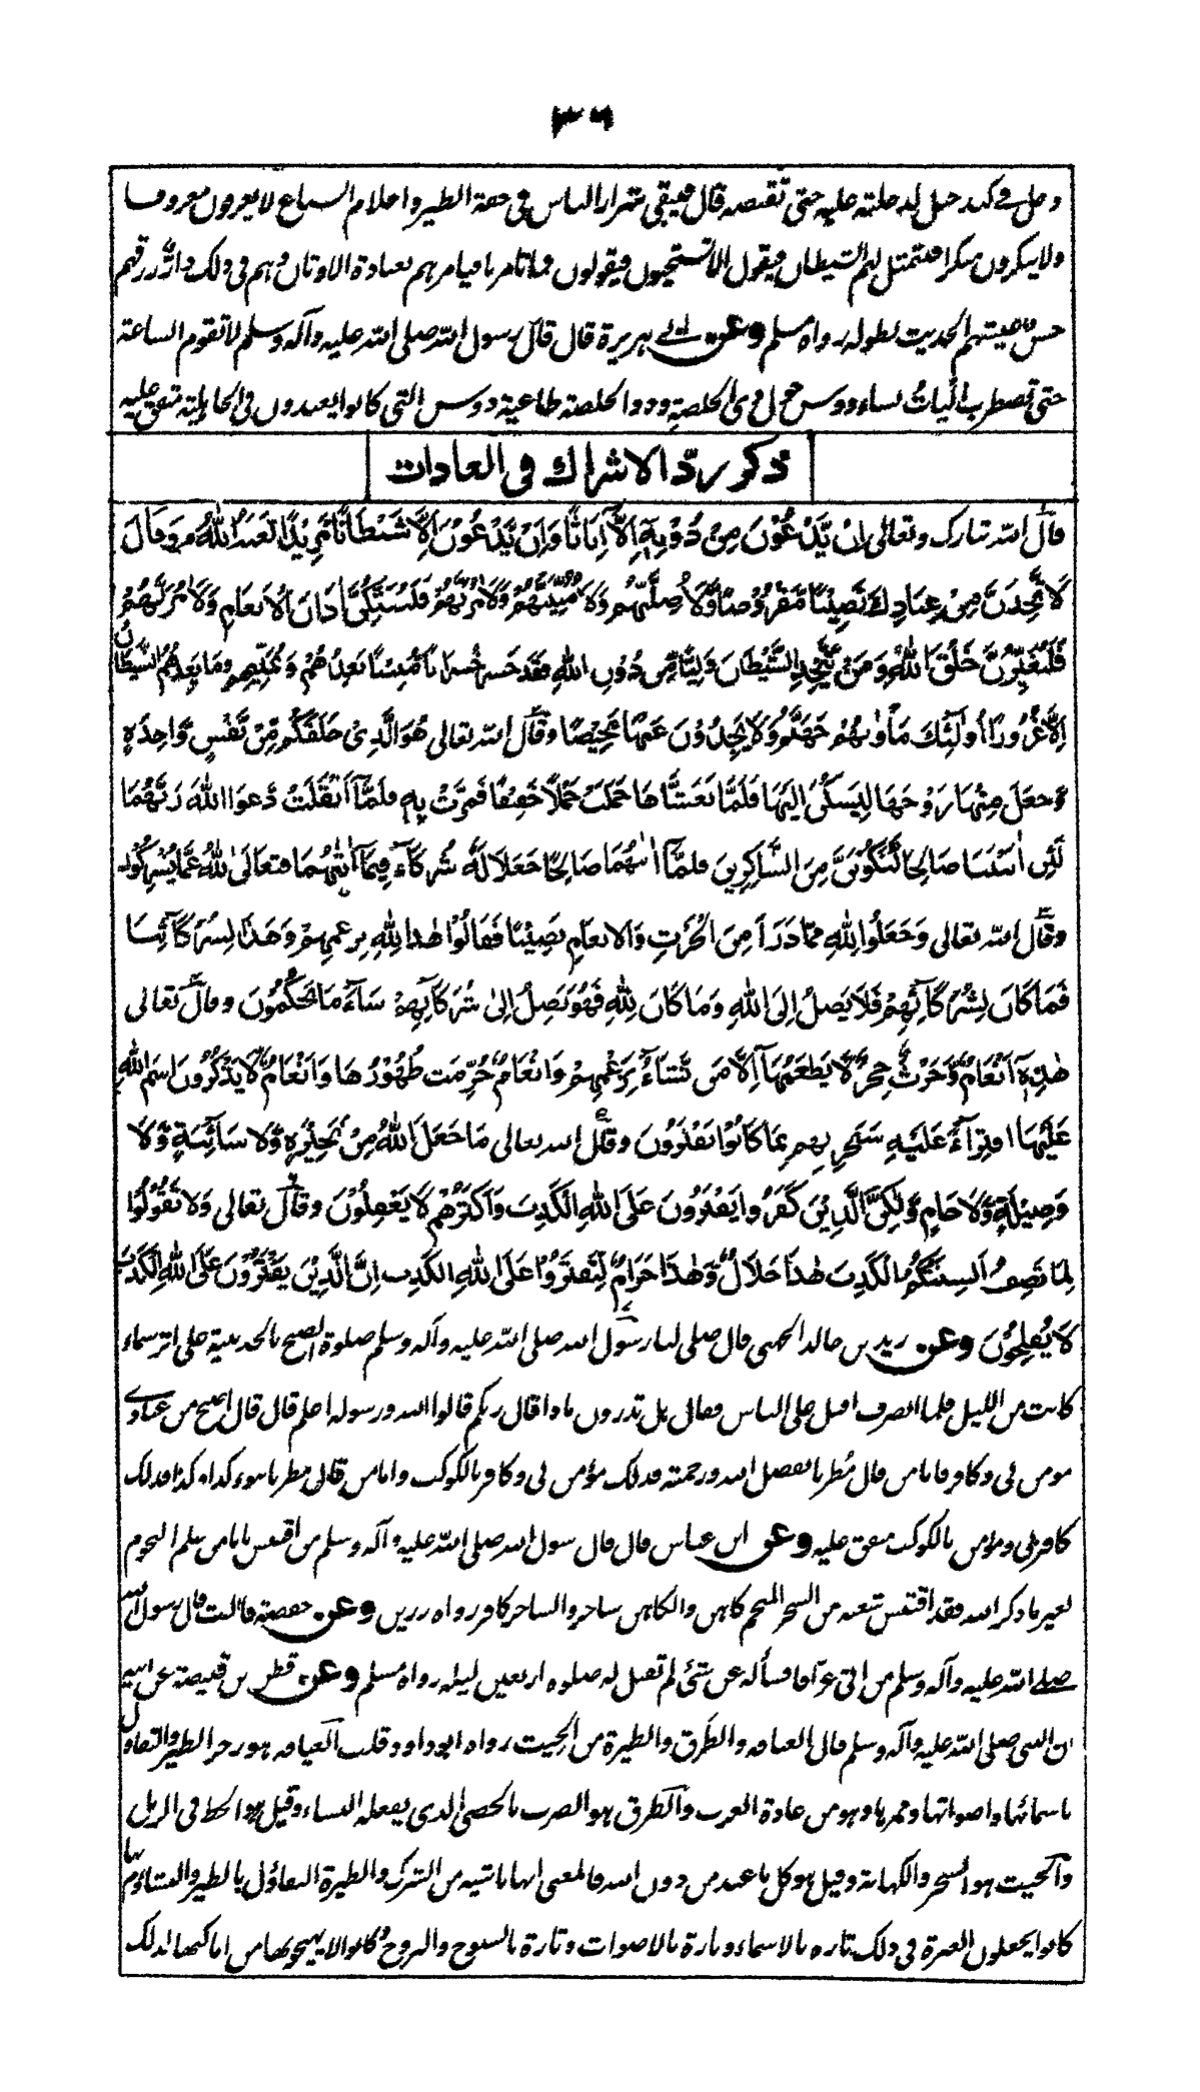 ٣٦
دخل في كبد جبل لدخلته عليه حتى تقبضه قال فيبقى شرار الناس في خفة الطير واحلام السباع لا يعرفون معروفا
ولا ينكرون منكرا فيتمثل لهم الشيطان فيقول الا تستحيون فيقولون فما تامرنا فيامرهم بعبادة الاوثان وهم في ذلك دار رزقهم
حسن عيشهم الحديث بطوله رواه مسلم وعن ابي هريرة قال قال رسول الله صلى الله عليه وآله وسلم لا تقوم الساعة
حتى تضطرب اليات نساء دوس حول ذي الخلصة وذو الخلصة طاغية دوس التي كانوا يعبدون في الجاهلية متفق عليه
ذكر ردّ الاشراك فى العادات
قال الله تبارك وتعالى اِنْ يَّدْعُوْنَ مِنْ دُوْنِهٖٓ اِلَّآ اِنَاثًا وَاِنْ يَّدْعُوْنَ اِلَّا شَيْطَانًا مَّرِيْدًا لَعَنَهُ اللهُ وَقَالَ
لَاَتَّخِذَنَّ مِنْ عِبَادِكَ نَصِيْبًا مَّفْرُوْضًا وَّلَاُضِلَّنَّهُمْ وَلَاُمَنِّيَنَّهُمْ وَلَاٰمُرَنَّهُمْ فَلَيُبَتِّكُنَّ اٰذَانَ الْاَنْعَامِ وَلَاٰمُرَنَّهُمْ
فَلَيُغَيِّرُنَّ خَلْقَ اللهِ وَمَنْ يَّتَّخِذِ الشَّيْطَانَ وَلِيًّا مِّنْ دُوْنِ اللهِ فَقَدْ خَسِرَ خُسْرَانًا مُّبِيْنًا يَعِدُهُمْ وَيُمَنِّيْهِمْ وَمَا يَعِدُهُمُ الشَّيْطَانُ
اِلَّا غُرُوْرًا اُولٰٓئِكَ مَاْوٰىهُمْ جَهَنَّمُ وَلَا يَجِدُوْنَ عَنْهَا مَحِيْصًا وقال الله تعالى هُوَ الَّذِيْ خَلَقَكُمْ مِّنْ نَّفْسٍ وَّاحِدَةٍ
وَّجَعَلَ مِنْهَا زَوْجَهَا لِيَسْكُنَ اِلَيْهَا فَلَمَّا تَغَشَّاهَا حَمَلَتْ حَمْلًا خَفِيْفًا فَمَرَّتْ بِهٖ فَلَمَّآ اَثْقَلَتْ دَّعَوَا اللهَ رَبَّهُمَا
لَئِنْ اٰتَيْتَنَا صَالِحًا لَّنَكُوْنَنَّ مِنَ الشَّاكِرِيْنَ فَلَمَّآ اٰتٰىهُمَا صَالِحًا جَعَلَا لَهٗ شُرَكَآءَ فِيْمَآ اٰتٰىهُمَا فَتَعَالَى اللهُ عَمَّا يُشْرِكُوْنَ
وقال الله تعالى وَجَعَلُوْا لِلّٰهِ مِمَّا ذَرَاَ مِنَ الْحَرْثِ وَالْاَنْعَامِ نَصِيْبًا فَقَالُوْا هٰذَا لِلّٰهِ بِزَعْمِهِمْ وَهٰذَا لِشُرَكَآئِنَا
فَمَا كَانَ لِشُرَكَآئِهِمْ فَلَا يَصِلُ اِلَى اللهِ وَمَا كَانَ لِلّٰهِ فَهُوَ يَصِلُ اِلٰى شُرَكَآئِهِمْ سَآءَ مَا يَحْكُمُوْنَ وقال تعالى
هٰذِهٖٓ اَنْعَامٌ وَّحَرْثٌ حِجْرٌ لَّا يَطْعَمُهَآ اِلَّا مَنْ نَّشَآءُ بِزَعْمِهِمْ وَاَنْعَامٌ حُرِّمَتْ ظُهُوْرُهَا وَاَنْعَامٌ لَّا يَذْكُرُوْنَ اسْمَ اللهِ
عَلَيْهَا افْتِرَآءً عَلَيْهِ سَيَجْزِيْهِمْ بِمَا كَانُوْا يَفْتَرُوْنَ وقال الله تعالى مَا جَعَلَ اللهُ مِنْ بَحِيْرَةٍ وَّلَا سَآئِبَةٍ وَّلَا
وَصِيْلَةٍ وَّلَا حَامٍ وَّلٰكِنَّ الَّذِيْنَ كَفَرُوْا يَفْتَرُوْنَ عَلَى اللهِ الْكَذِبَ وَاَكْثَرُهُمْ لَا يَعْقِلُوْنَ وقال تعالى وَلَا تَقُوْلُوْا
لِمَا تَصِفُ اَلْسِنَتُكُمُ الْكَذِبَ هٰذَا حَلَالٌ وَّهٰذَا حَرَامٌ لِّتَفْتَرُوْا عَلَى اللهِ الْكَذِبَ اِنَّ الَّذِيْنَ يَفْتَرُوْنَ عَلَى اللهِ الْكَذِبَ
لَا يُفْلِحُوْنَ وعن زيد بن خالد الجهني قال صلى لنا رسول الله صلى الله عليه وآله وسلم صلوة الصبح بالحديبية على اثر سماء
كانت من الليل فلما انصرف اقبل على الناس فقال هل تدرون ماذا قال ربكم قالوا الله ورسوله اعلم قال قال اصبح من عبادي
مومن بي وكافر فاما من قال مُطرنا بفضل الله ورحمته فذلك مؤمن بي وكافر بالكوكب واما من قال مطرنا بنوء كذا وكذا فذلك
كافر بي ومؤمن بالكوكب متفق عليه وعن ابن عباس قال قال رسول الله صلى الله عليه وآله وسلم من اقتبس بابا من علم النجوم
لغير ما ذكر الله فقد اقتبس شعبة من السحر المنجم كاهن والكاهن ساحر والساحر كافر رواه رزين وعن حفصة قالت قال رسول الله
صلى الله عليه وآله وسلم من اتى عرّافا فسأله عن شئ لم تقبل له صلوة اربعين ليلة رواه مسلم وعن قطن بن قبيصة عن ابيه
ان النبي صلى الله عليه وآله وسلم قال العيافة والطَرق والطيرة من الجبت رواه ابو داود قلت العيافة هو زجر الطير والتفاول
باسمائها واصواتها وممرها وهو من عادة العرب والطرق هو الضرب بالحصى الذي يفعله النساء وقيل هو الخط في الرمل
والجبت هو السحر والكهانة وقيل هو كل ما عبد من دون الله فالمعنى انها ناشية من الشرك والطيرة التفاؤل بالطير والتشاؤم بها
كانوا يجعلون العبرة في ذلك تارة بالاسماء وتارة بالاصوات وتارة بالسنوح والبروح وكانوا يهيجونها من اماكنها لذلك